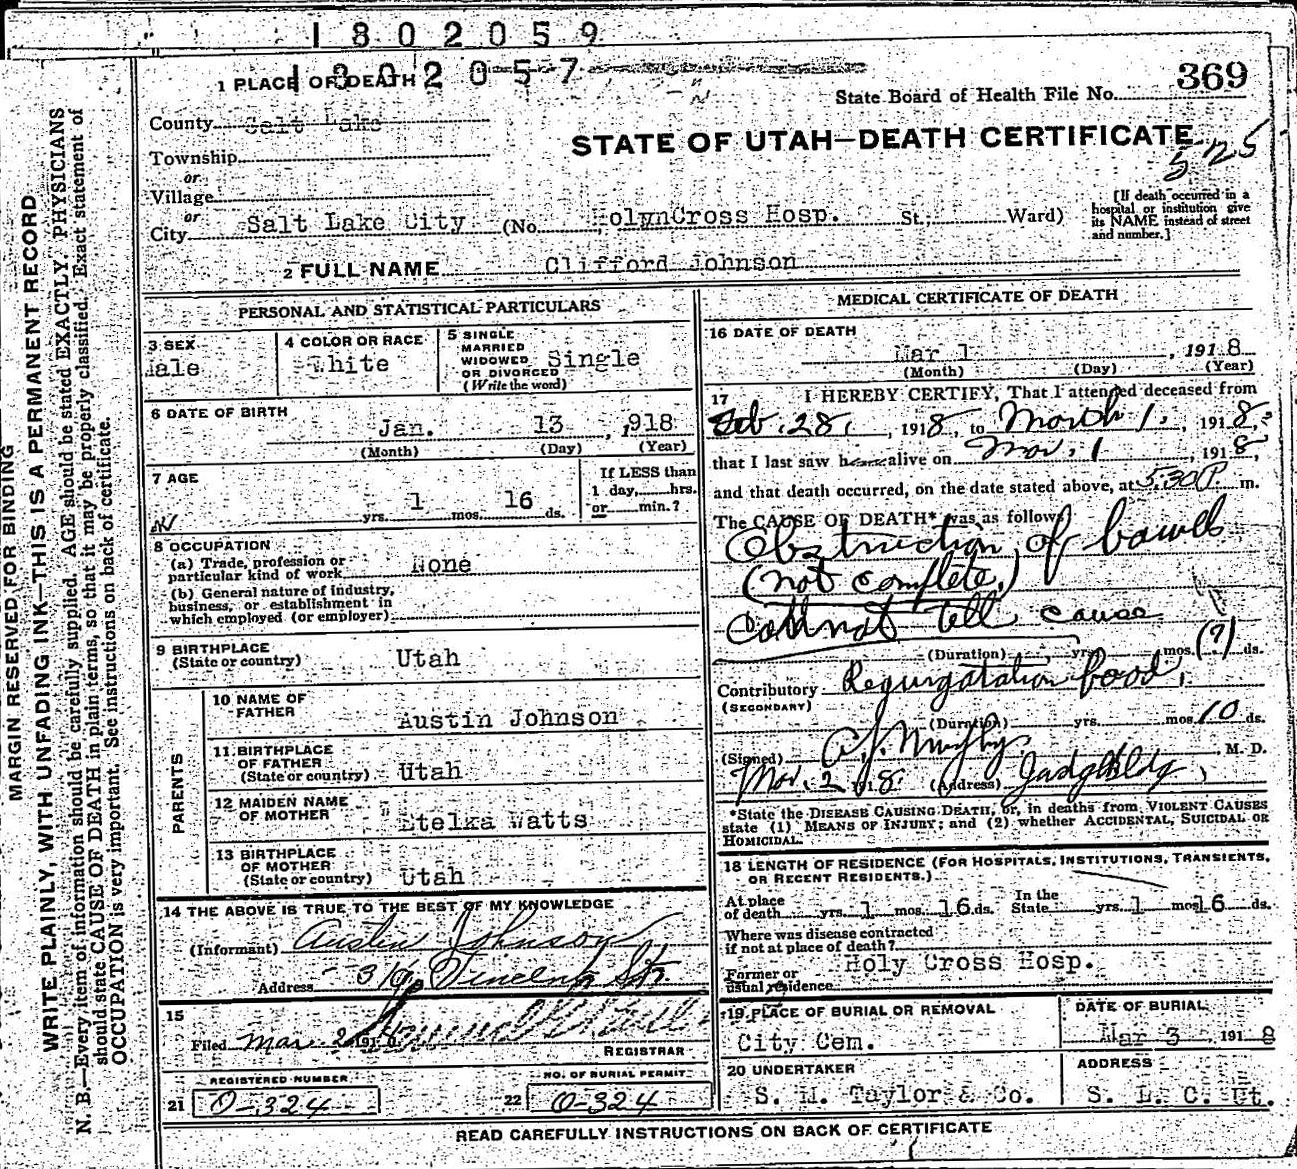 1802059
1802057
1 PLACE OF DEATH
State Board of Health File No. 369
County Salt Lake
STATE OF UTAH—DEATH CERTIFICATE
525
Township
or
Village
or
City Salt Lake City (No. HolynCross Hosp. St., Ward)
[If death occurred in a
hospital or institution give
its NAME instead of street
and number.]
2 FULL NAME Clifford Johnson
PERSONAL AND STATISTICAL PARTICULARS
3 SEX
Male
4 COLOR OR RACE
White
5 SINGLE
MARRIED
WIDOWED
OR DIVORCED
(Write the word)
Single
6 DATE OF BIRTH
Jan. 13, 1918
(Month) (Day) (Year)
7 AGE
yrs. 1 mos. 16 ds.
If LESS than
1 day, hrs.
or min.?
8 OCCUPATION
(a) Trade, profession or
particular kind of work None
(b) General nature of industry,
business, or establishment in
which employed (or employer)
9 BIRTHPLACE
(State or country) Utah
PARENTS
10 NAME OF
FATHER Austin Johnson
11 BIRTHPLACE
OF FATHER
(State or country) Utah
12 MAIDEN NAME
OF MOTHER Etelka Watts
13 BIRTHPLACE
OF MOTHER
(State or country) Utah
14 THE ABOVE IS TRUE TO THE BEST OF MY KNOWLEDGE
(Informant) Austin Johnson
Address Vincent St.
15
Filed Mar 2 191
REGISTRAR
REGISTERED NUMBER
21 O-324
NO. OF BURIAL PERMIT
22 O-324
MEDICAL CERTIFICATE OF DEATH
16 DATE OF DEATH
Mar 1, 1918
(Month) (Day) (Year)
17 I HEREBY CERTIFY, That I attended deceased from
Feb. 28, 1918, to March 1, 1918,
that I last saw h alive on Mar. 1, 1918,
and that death occurred, on the date stated above, at 5:30 P. m.
The CAUSE OF DEATH* was as follows:
Obstruction of bowels
(not complete.)
Could not tell cause
(Duration) yrs. mos. (?) ds.
Contributory Regurgatation food,
(SECONDARY)
(Duration) yrs. mos. 10 ds.
(Signed) A. J. Murphy M. D.
Mar. 2 1918 (Address) Judge Bldg,
*State the DISEASE CAUSING DEATH, or, in deaths from VIOLENT CAUSES
state (1) MEANS OF INJURY; and (2) whether ACCIDENTAL, SUICIDAL OR
HOMICIDAL.
18 LENGTH OF RESIDENCE (FOR HOSPITALS, INSTITUTIONS, TRANSIENTS,
OR RECENT RESIDENTS.)
At place
of death yrs. 1 mos. 16 ds.
In the
State yrs. 1 mos 16 ds.
Where was disease contracted
if not at place of death?
Former or
usual residence Holy Cross Hosp.
19 PLACE OF BURIAL OR REMOVAL
City Cem.
DATE OF BURIAL
Mar 3 1918
20 UNDERTAKER
S. M. Taylor & Co.
ADDRESS
S. L. C. Ut.
READ CAREFULLY INSTRUCTIONS ON BACK OF CERTIFICATE
MARGIN RESERVED FOR BINDING
WRITE PLAINLY, WITH UNFADING INK—THIS IS A PERMANENT RECORD
N. B.—Every item of information should be carefully supplied. AGE should be stated EXACTLY. PHYSICIANS
should state CAUSE OF DEATH in plain terms, so that it may be properly classified. Exact statement of
OCCUPATION is very important. See instructions on back of certificate.